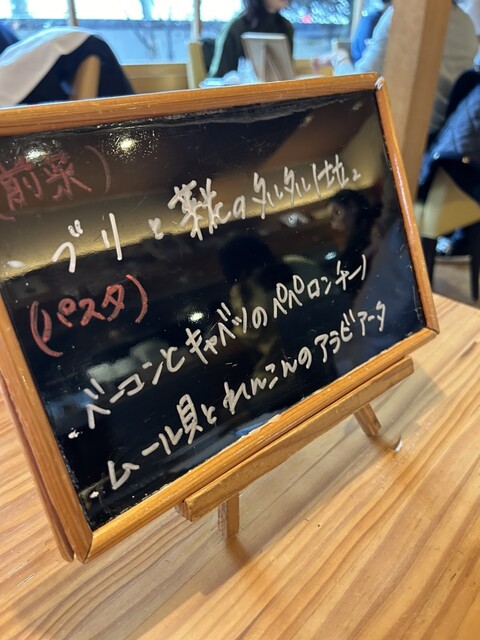 (前菜)
・ブリと菜花のタルタル仕立
(パスタ)
・ベーコンとキャベツのペペロンチーノ
・ムール貝とれんこんのアラビアータ